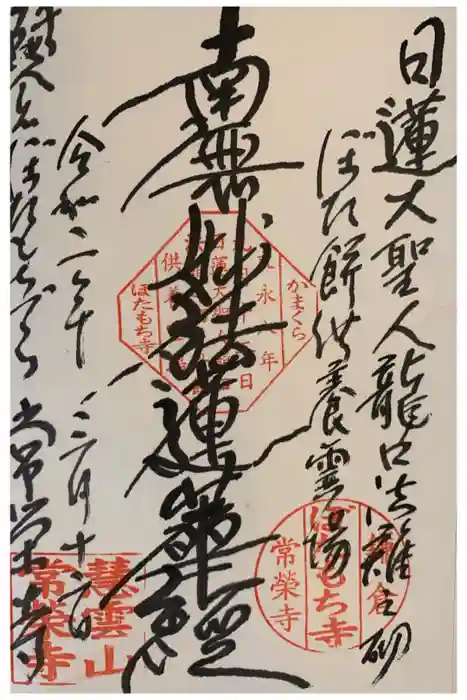 日蓮大聖人龍口法難
ぼた餅供養霊場
南無妙法蓮華経
令和二年三月十六日
鎌倉ぼたもちでら 常栄寺
かまくら
文永
年
日
日蓮大
供養
ほたもち寺
鎌倉
ぼたもち寺
常榮寺
慧雲山
常榮寺